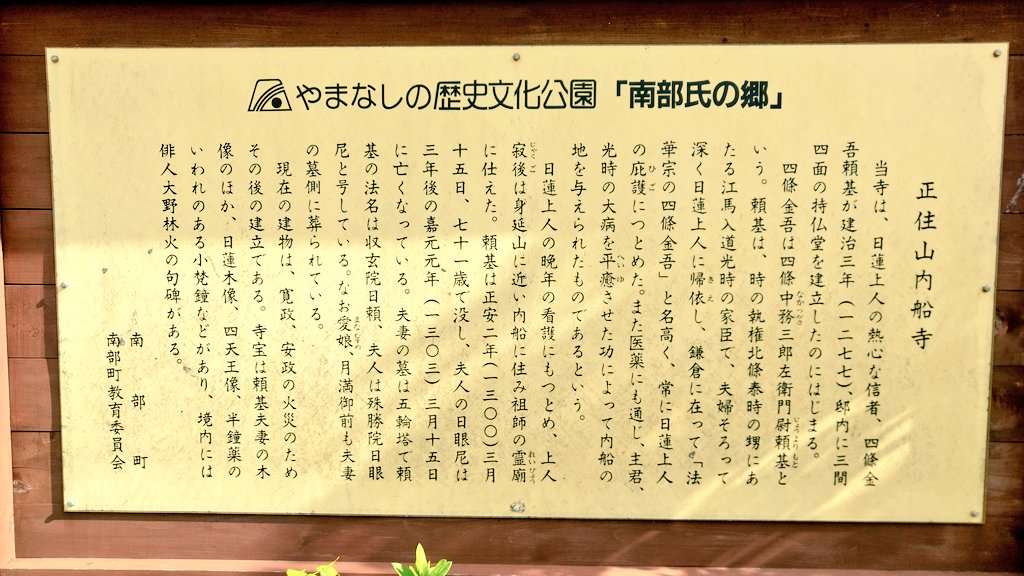 やまなしの歴史文化公園「南部氏の郷」
正住山内船寺
当寺は、日蓮上人の熱心な信者、四條金
吾頼基が建治三年（一二七七）、邸内に三間
四面の持仏堂を建立したのにはじまる。
四條金吾は四條中務三郎左衛門尉頼基と
いう。頼基は、時の執権北條泰時の甥にあ
たる江馬入道光時の家臣で、夫婦そろって
深く日蓮上人に帰依し、鎌倉に在って「法
華宗の四條金吾」と名高く、常に日蓮上人
の庇護につとめた。また医薬にも通じ、主君、
光時の大病を平癒させた功によって内船の
地を与えられたものであるという。
日蓮上人の晩年の看護にもつとめ、上人
寂後は身延山に近い内船に住み祖師の霊廟
に仕えた。頼基は正安二年（一三〇〇）三月
十五日、七十一歳で没し、夫人の日眼尼は
三年後の嘉元元年（一三〇三）三月十五日
に亡くなっている。夫妻の墓は五輪塔で頼
基の法名は収玄院日頼、夫人は殊勝院日眼
尼と号している。なお愛娘、月満御前も夫妻
の墓側に葬られている。
現在の建物は、寛政、安政の火災のため
その後の建立である。寺宝は頼基夫妻の木
像のほか、日蓮木像、四天王像、半鐘薬の
いわれのある小梵鐘などがあり、境内には
俳人大野林火の句碑がある。
南部町
南部町教育委員会